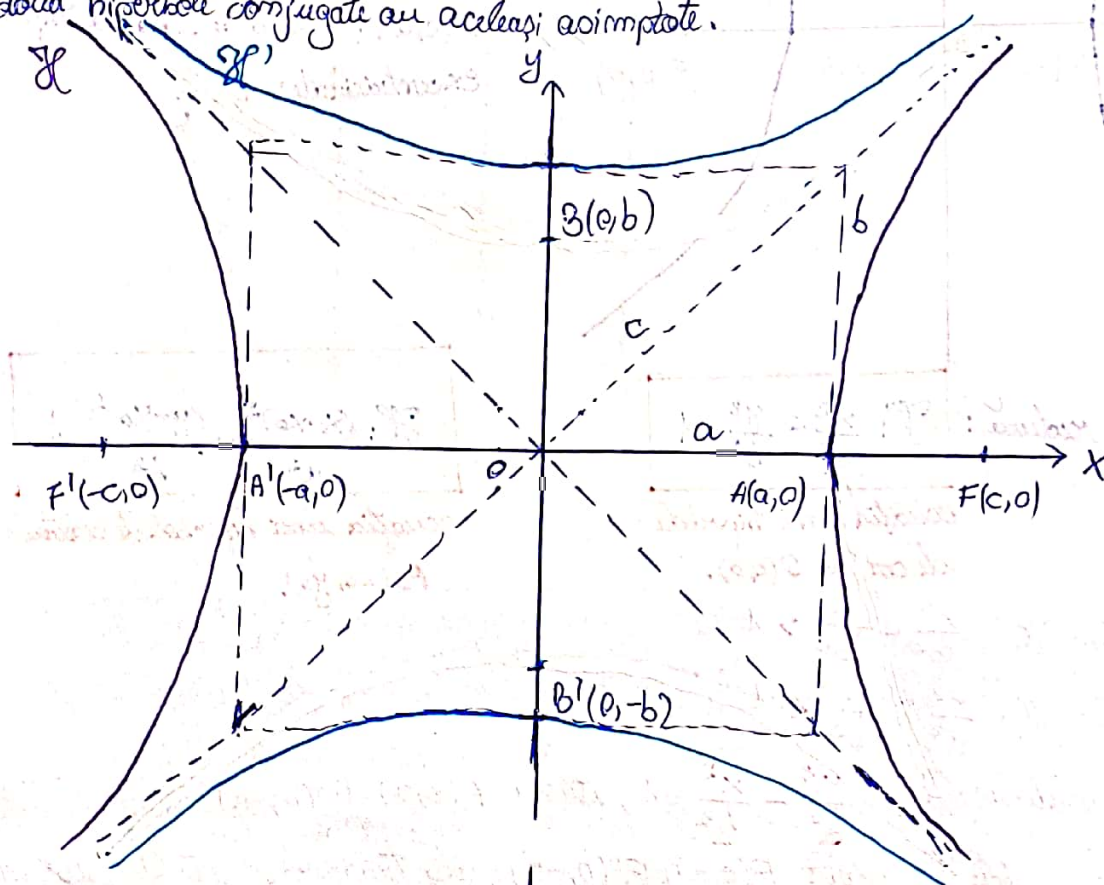 hiperbole conjugate au aceleași asimptote.
H H' y
B(0,b) b
c
a
O x
F'(-c,0) A'(-a,0) A(a,0) F(c,0)
B'(0,-b)